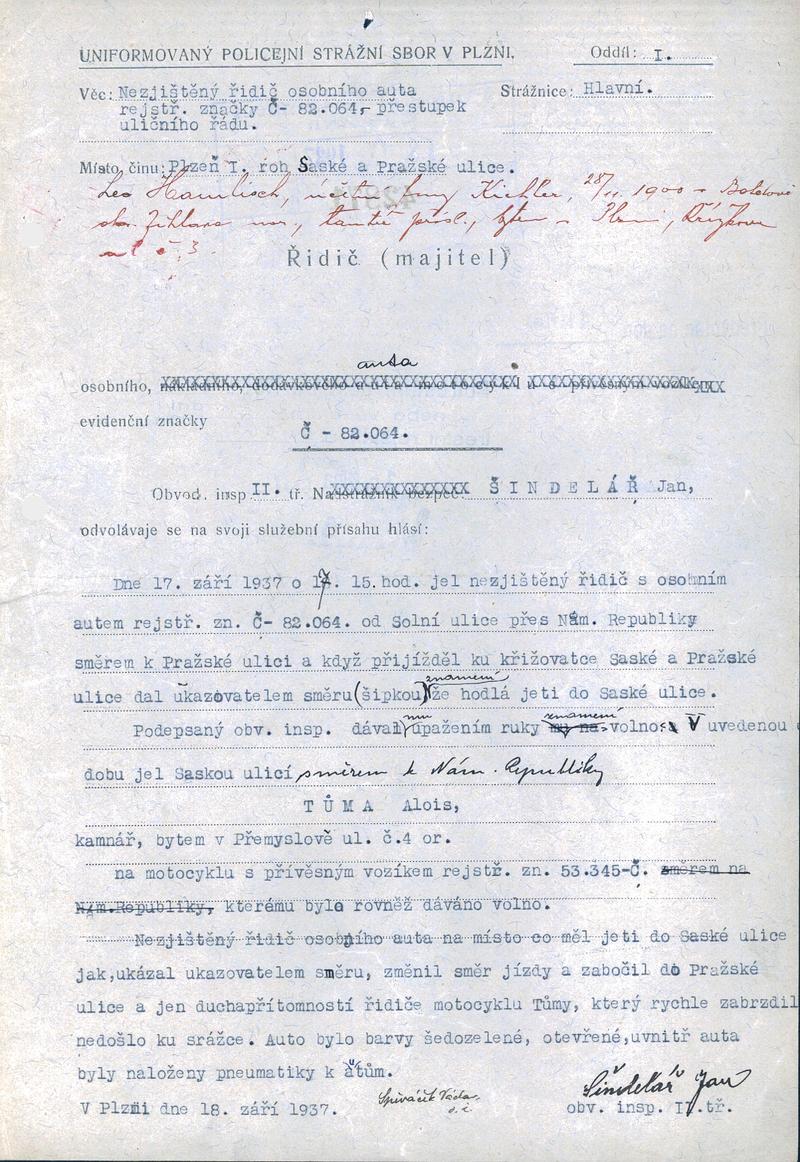 UNIFORMOVANÝ POLICEJNÍ STRÁŽNÍ SBOR V PLZNI.
Oddíl: I.
Věc: Nezjištěný řidič osobního auta
rejstř. značky Č- 82.064,- přestupek
uličního řádu.
Strážnice: Hlavní.
Místo činu: Plzeň I. roh Saské a Pražské ulice.
Leo Hamlisch, firmy Kichler, 28/11 1900
okr. Žihlava tamtéž přísl., bytem v Plzni, Křížkova
ul č. 3.
Řidič (majitel)
auta
osobního, nákladního, dodávkového auta - motocyklu s přívěsným vozíkem
evidenční značky
Č - 82.064.
Obvod. insp II. tř. Nadstrážník bezpeč. ŠINDELÁŘ Jan,
odvolávaje se na svoji služební přísahu hlásí:
Dne 17. září 1937 o 17. 15.hod. jel nezjištěný řidič s osobním
autem rejstř. zn. Č- 82.064. od Solní ulice přes Nám. Republiky
směrem k Pražské ulici a když přijížděl ku křižovatce Saské a Pražské
znamení
ulice dal ukazovatelem směru (šipkou) že hodlá jeti do Saské ulice.
mu znamení
Podepsaný obv. insp. dával upažením ruky mu na volno. V uvedenou
dobu jel Saskou ulicí směrem k Nám. Republiky
TŮMA Alois,
kamnář, bytem v Přemyslově ul. č.4 or.
na motocyklu s přívěsným vozíkem rejstř. zn. 53.345-Č. směrem na
Nám.Republiky, kterému bylo rovněž dáváno volno.
Nezjištěný řidič osobního auta na místo co měl jeti do Saské ulice
jak,ukázal ukazovatelem směru, změnil směr jízdy a zabočil do Pražské
ulice a jen duchapřítomností řidiče motocyklu Tůmy, který rychle zabrzdil
nedošlo ku srážce. Auto bylo barvy šedozelené, otevřené,uvnitř auta
byly naloženy pneumatiky k autům.
V Plzni dne 18. září 1937.
Spiváček
Šindelář Jan
obv. insp. II.tř.